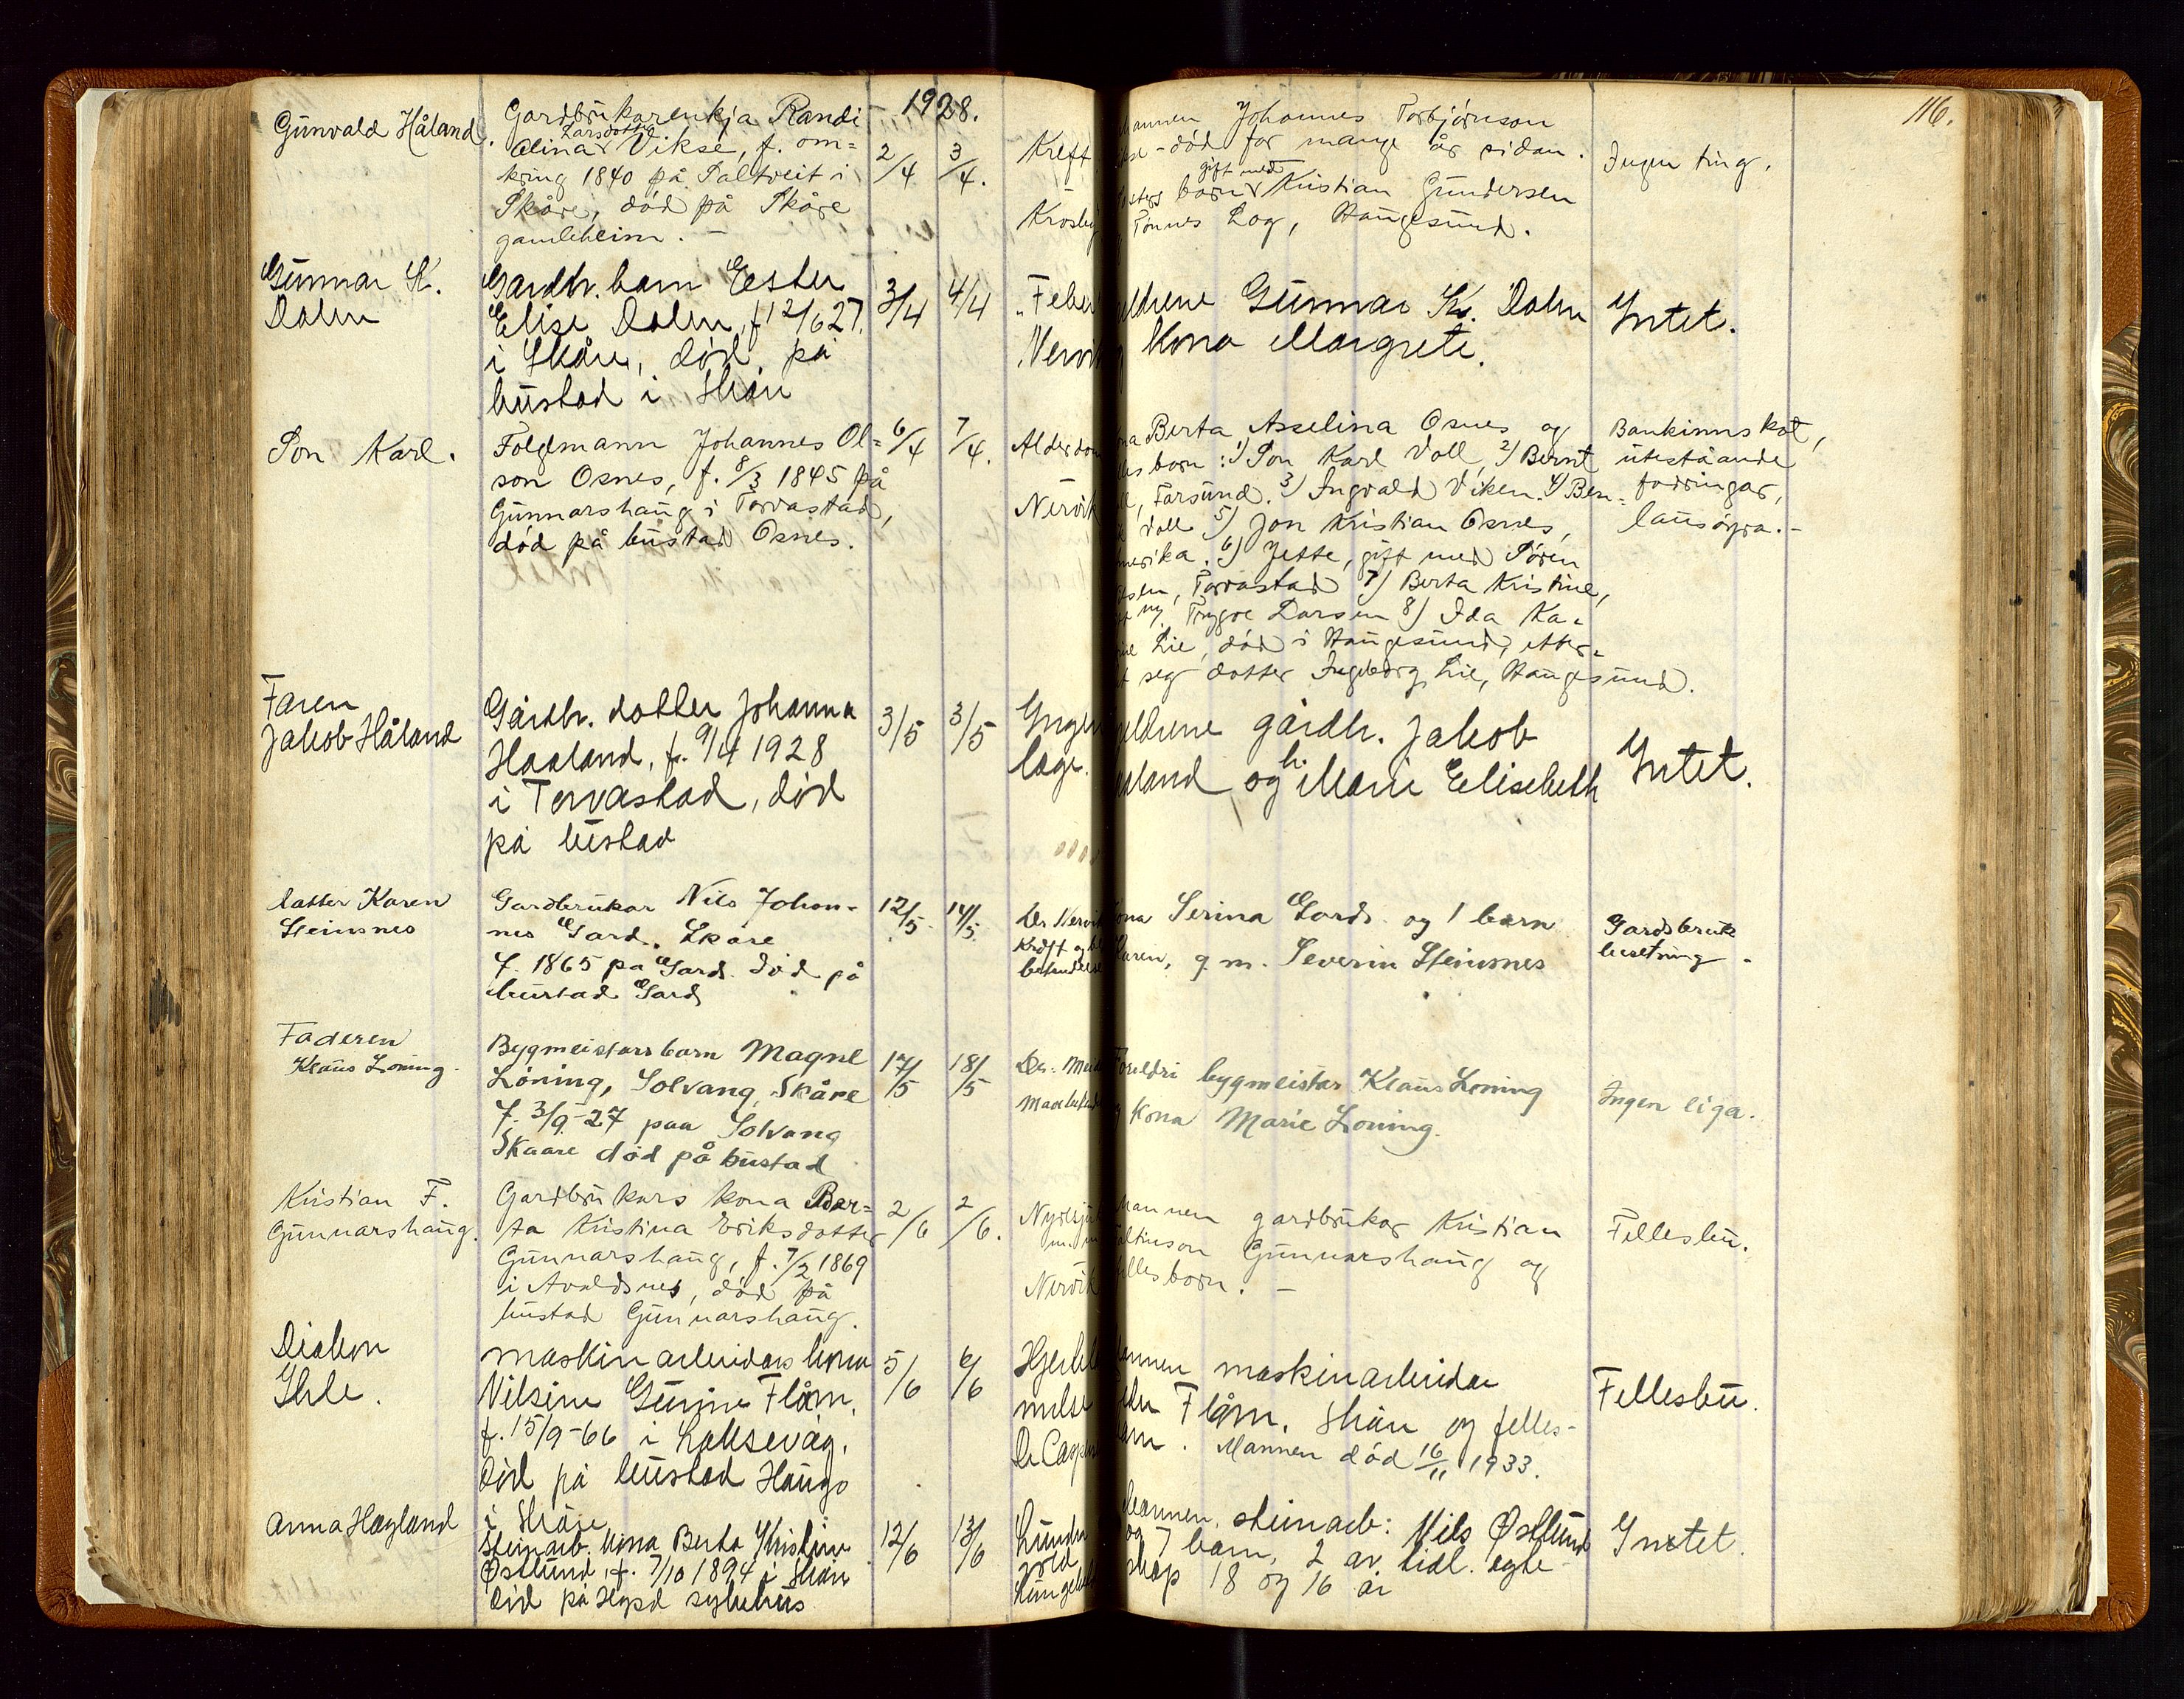 1928.
116.
Gunvald Håland.
Gardbrukarenkja Randi
Larsdotter
Alina Vikse, f. om=
kring 1840 på Saltveit i
Skåre, død på Skåre
gamleheim. –
2/4
3/4.
Kreft
Johannes Torbjørnson
– død for mange år sidan.
gift med
born Kristian Gundersen
Tønnes Log, Haugesund.
Ingen ting.
Gunnar K.
Dalen
Gardbr. barn Ester
Elise Dalen, f 12/6 27.
i Skåre, død på
bustad i Skåre
3/4
4/4
Gunnar K. Dalen
Kona Margrete.
Yntet.
Son Karl.
Folgemann Johannes Ol=
son Osnes, f. 8/3 1845 på
Gunnarshaug i Torvastad,
død på bustad Osnes.
6/4
7/4.
Alderdom
Nervik
Berta Asselina Osnes og
born: 1) Son Karl Voll, 2) Bernt
Farsund. 3) Ingvald Viken. 4) Ben-
Voll 5) Jon Kristian Osnes,
6) Jette, gift med Søren
Torvastad 7) Berta Kristine,
Trygve Larsen 8) Ida Ka-
Lie, død i Haugesund, etter-
seg dotter Ingeborg Lie, Haugesund.
Bankinnskot,
uteståande
fordringar,
lausøyra. –
Faren
Jakob Håland
Gårdbr. dotter Johanna
Haaland, f. 9/4 1928
i Torvastad, død
på bustad
3/5
3/5
lege.
gårdbr. Jakob
og h. Marie Elisebeth
Yntet.
Datter Karen
Steinsnes
Gardbrukar Nils Johan-
nes Gard. Skåre
f. 1865 på Gard. død på
bustad Gard
12/5
14/5.
Serina Gard. og 1 barn
Karen, g. m. Severin Steinsnes
Gardsbruk
besetning –
Faderen
Klaus Loning.
Bygmeistars barn Magnel
Löning, Solvang, Skåre
f. 3/9-27 paa Solvang
Skaare død på bustad
17/5
18/5
Foreldri bygmeistar Klaus Loning
kona Marie Loning.
Ingen eiga.
Kristian F.
Gunnarshaug.
Gardbrukars kona Ber=
ta Kristina Eriksdotter
Gunnarshaug, f. 7/2 1869
i Avaldsnes, død på
bustad Gunnarshaug.
2/6
2/6.
Nervik
Mannen gardbrukar Kristian
Gunnarshaug og
fellesborn. –
Fellesbu.
Diakon
Ihle.
maskinarbeidars kona
Nilsine Gurine Flåm,
f. 15/9-66 i Laksevåg.
Död på bustad Hauge
i Skåre
5/6
6/6
maskinarbeidar
Flåm, Skåre og felles-
Mannen död 16/11 1933.
Fellesbu.
Anna Hagland
Steinarb. kona Berta Kristine
Østlund, f. 7/10 1894 i Skåre
Död på Hgsd sykehus
12/6
13/6
Mannen, steinarb: Nils Østlund
og 7 barn, 2 av tidl. egte-
skap 18 og 16 år
Yntet.